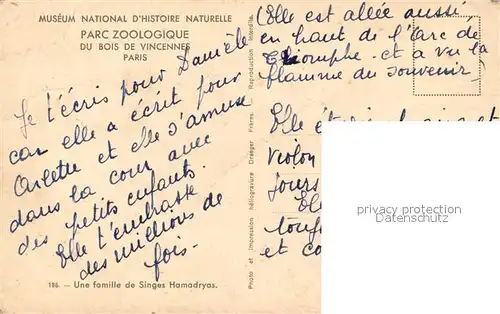 MUSÉUM NATIONAL D'HISTOIRE NATURELLE
PARC ZOOLOGIQUE
DU BOIS DE VINCENNES
PARIS
Je t'écris pour Danièle
car elle a écrit pour
Arlette et elle s'amuse
dans la cour avec
des petits enfants.
Elle t'embrasse
des millions de
fois.
186. — Une famille de Singes Hamadryas.
Photo et Impression héliogravure Draeger Frères. Reproduction interdite.
(Elle est allée aussi,
en haut de l'Arc de
Triomphe et a vu la
flamme du souvenir)
Elle
violon
jours
El
touj
et co
privacy protection
Datenschutz